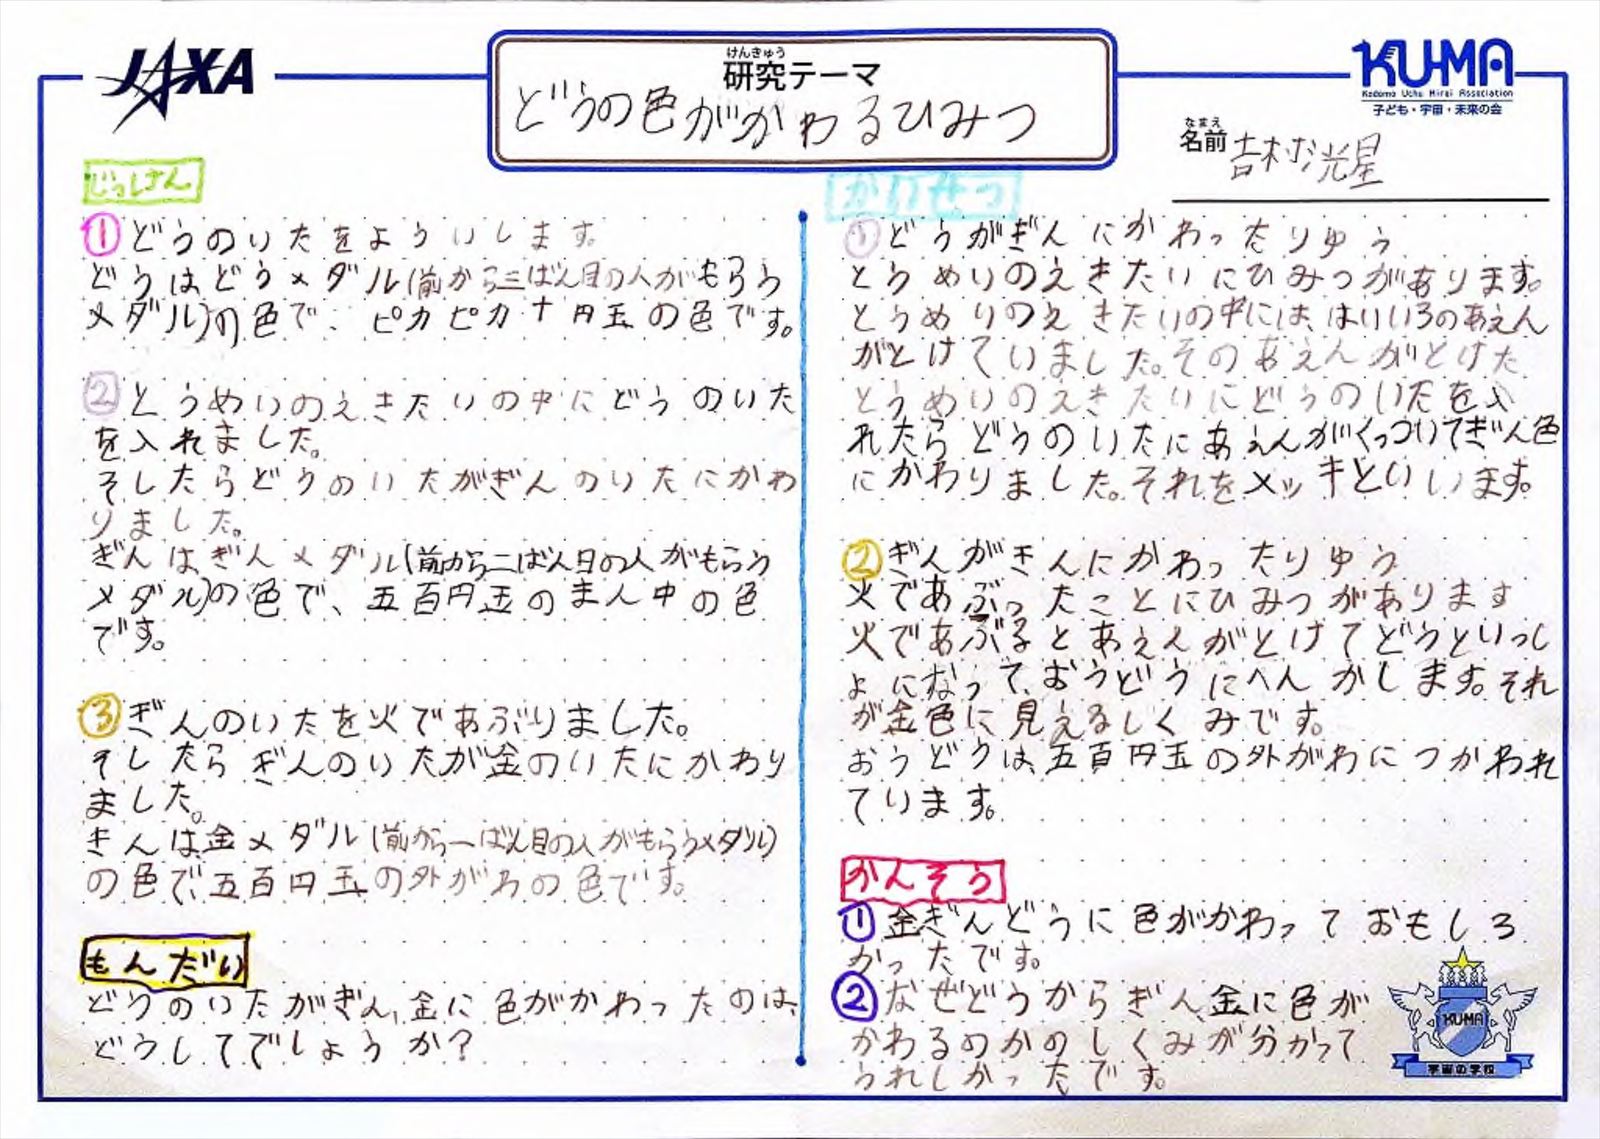 JAXA
けんきゅう
研究テーマ
どうの色がかわるひみつ
KU-MA
Kodomo Uchu Mirai Association
子ども・宇宙・未来の会
なまえ
名前 吉村光星
じっけん
① どうのいたをよういします。
どうはどうメダル(前から三ばん目の人がもらう
メダル)の色で、ピカピカ十円玉の色です。
② とうめいのえきたいの中にどうのいた
を入れました。
そしたらどうのいたがぎんのいたにかわ
りました。
ぎんはぎんメダル(前から二ばん目の人がもらう
メダル)の色で、五百円玉のまん中の色
です。
③ ぎんのいたを火であぶりました。
そしたらぎんのいたが金のいたにかわり
ました。
きんは金メダル(前から一ばん目の人がもらうメダル)
の色で、五百円玉の外がわの色です。
もんだい
どうのいたがぎん、金に色がかわったのは、
どうしてでしょうか?
かけせつ
① どうがぎんにかわったりゆう
とうめいのえきたいにひみつがあります。
とうめいのえきたいの中には、はいいろのあえん
がとけていました。そのあえんがとけた
とうめいのえきたいにどうのいたを入
れたらどうのいたにあえんがくっついてぎん色
にかわりました。それをメッキといいます。
② ぎんがきんにかわったりゆう
火であぶったことにひみつがあります
火であぶるとあえんがとけてどうといっし
ょになって、おうどうにへんかします。それ
が金色に見えるしくみです。
おうどうは、五百円玉の外がわにつかわれ
ています。
かんそう
① 金ぎんどうに色がかわっておもしろ
かったです。
② なぜどうからぎん、金に色が
かわるのかのしくみが分かって
うれしかったです。
KUMA
宇宙の学校